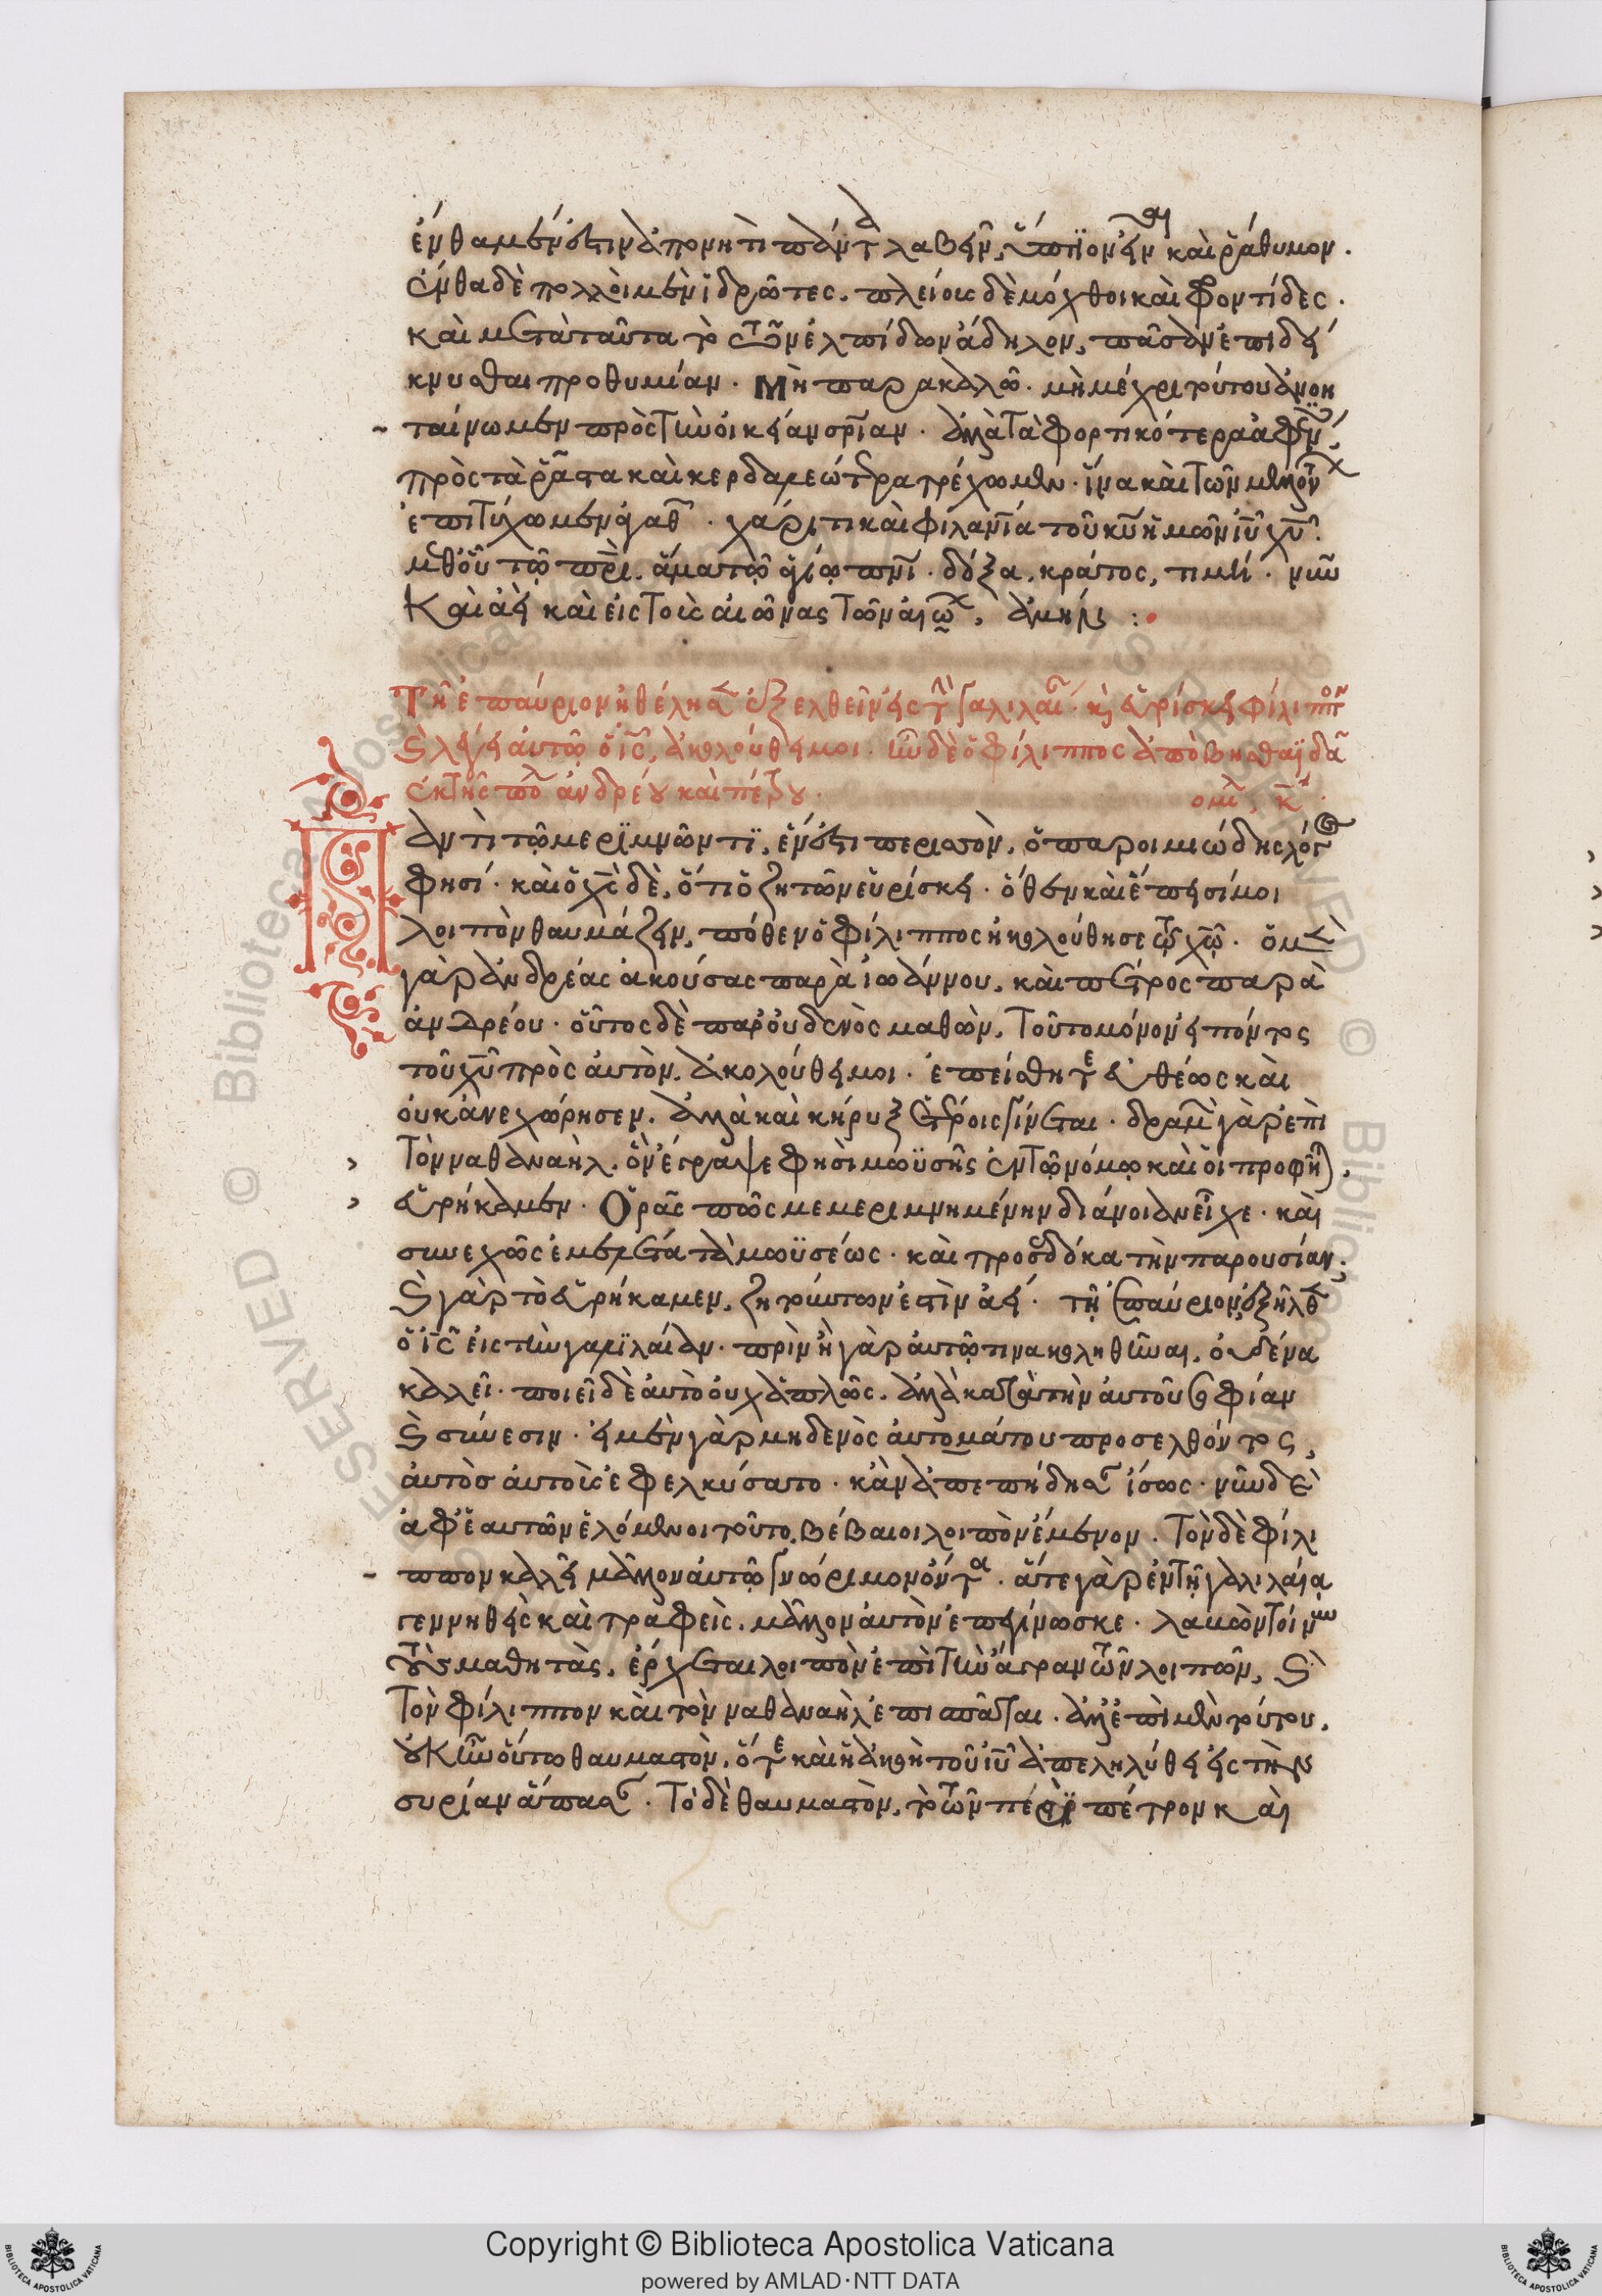 ἔνθα μέν ἐστιν ἀπονητὶ πάντα λαβεῖν, ὕπτιον εἶναι καὶ ῥάθυμον.
ἔνθα δὲ πολλοὶ μὲν ἱδρῶτες. πλείους δὲ μόχθοι καὶ φροντίδες.
καὶ μετὰ ταῦτα τὸ τῶν ἐλπίδων ἄδηλον, πᾶσαν ἐπιδεί
κνυσθαι προθυμίαν. Μὴ παρακαλῶ. μὴ μέχρι τούτου ἀνοη
ταίνωμεν πρὸς τὴν οἰκείαν σρίαν. ἀλλὰ τὰ φορτικότερα ἀφέντες,
πρὸς τὰ ῥᾷστα καὶ κερδαλεώτερα τρέχωμεν. ἵνα καὶ τῶν μελλόντων
ἐπιτύχωμεν ἀγαθῶν. χάριτι καὶ φιλανίᾳ τοῦ κυ ἡμῶν ιυ χυ.
μεθ' οὗ τῷ πρι. ἅμα τῷ ἁγίῳ πνι. δόξα, κράτος, τιμή. νῦν
Καὶ ἀεὶ καὶ εἰς τοὺς αἰῶνας τῶν αἰώνων, ἀμήν :
Τῇ ἐπαύριον ἠθέλησεν ἐξελθεῖν εἰς τὴν γαλιλαίαν. κ εὑρίσκει φίλιππον
καὶ λέγει αὐτῷ ὁ ις, ἀκολούθει μοι. ἦν δὲ ὁ φίλιππος ἀπὸ βηθσαϊδὰ
ἐκ τῆς πόλεως ἀνδρέου καὶ πέτρου. ομιλ, κ.
Παντὶ τῷ μεριμνῶντι, ἔνεστι περισσὸν, ὁ παροιμιώδης λόγος
φησί. καὶ ὁ χς δὲ, ὅτι ὁ ζητῶν εὑρίσκει. ὅθεν καὶ ἔπεισί μοι
λοιπὸν θαυμάζειν, πόθεν ὁ φίλιππος ἠκολούθησε τῷ χῷ. ὁ μὲν
γὰρ ἀνδρέας ἀκούσας παρὰ ἰωάννου. καὶ πέτρος παρὰ
ἀνδρέου. οὗτος δὲ παρ' οὐδενὸς μαθὼν, τοῦτο μόνον εἰπόντος
τοῦ χυ πρὸς αὐτὸν. ἀκολούθει μοι. ἐπείσθη τε εὐθέως καὶ
οὐκ ἀνεχώρησεν. ἀλλὰ καὶ κήρυξ ἑτέροις γίνεται. δραμὼν γὰρ ἐπὶ
τὸν ναθαναὴλ. ὃν ἔγραψε φησὶ μωϋσῆς ἐν τῷ νόμῳ καὶ οἱ προφῆται,
εὑρήκαμεν. Ὁρᾷς πῶς μεμεριμνημένην διάνοιαν εἶχε. καὶ
συνεχῶς ἐμελέτα τὰ μωϋσέως. καὶ προσεδόκα τὴν παρουσίαν.
καὶ γὰρ τὸ εὑρήκαμεν, ζητούντων ἐστὶν ἀεί. τῇ ἐπαύριον, ἐξῆλθεν
ὁ ις εἰς τὴν γαλιλαίαν. πρὶν ἢ γὰρ αὐτῷ τινα κολληθῆναι, οὐδένα
καλεῖ. ποιεῖ δὲ αὐτὸ οὐχ ἁπλῶς. ἀλλὰ κατὰ τὴν αὐτοῦ σοφίαν
καὶ σύνεσιν. εἰ μὲν γὰρ μηδενὸς αὐτομάτου προσελθόντος,
αὐτὸς αὐτοὺς ἐφελκύσατο. κἂν ἀπεπήδησαν ἴσως. νῦν δὲ
ἀφ' ἑαυτῶν ἑλόμενοι τοῦτο, βέβαιοι λοιπὸν ἔμενον. Τὸν δὲ φίλι
ππον καλεῖ μᾶλλον αὐτῷ γνώριμον ὄντα. ἅτε γὰρ ἐν τῇ γαλιλαίᾳ
γεννηθεὶς καὶ τραφεὶς. μᾶλλον αὐτὸν ἐπεγίνωσκε. λαβὼν τοίνυν
τοὺς μαθητὰς, ἔρχεται λοιπὸν ἐπὶ τὴν ἄγραν τῶν λοιπῶν, καὶ
τὸν φίλιππον καὶ τὸν ναθαναὴλ ἐπισπᾶται. ἀλλ' ἐπὶ μὲν τούτου,
οὐκ ἦν οὕτω θαυμαστὸν, ὅτε καὶ ἡ ἀκοὴ τοῦ ιυ ἀπεληλύθει εἰς τὴν
συρίαν ἅπασαν. Τὸ δὲ θαυμαστὸν, τὸ τῶν περὶ πέτρον καὶ
Copyright © Biblioteca Apostolica Vaticana
powered by AMLAD·NTT DATA